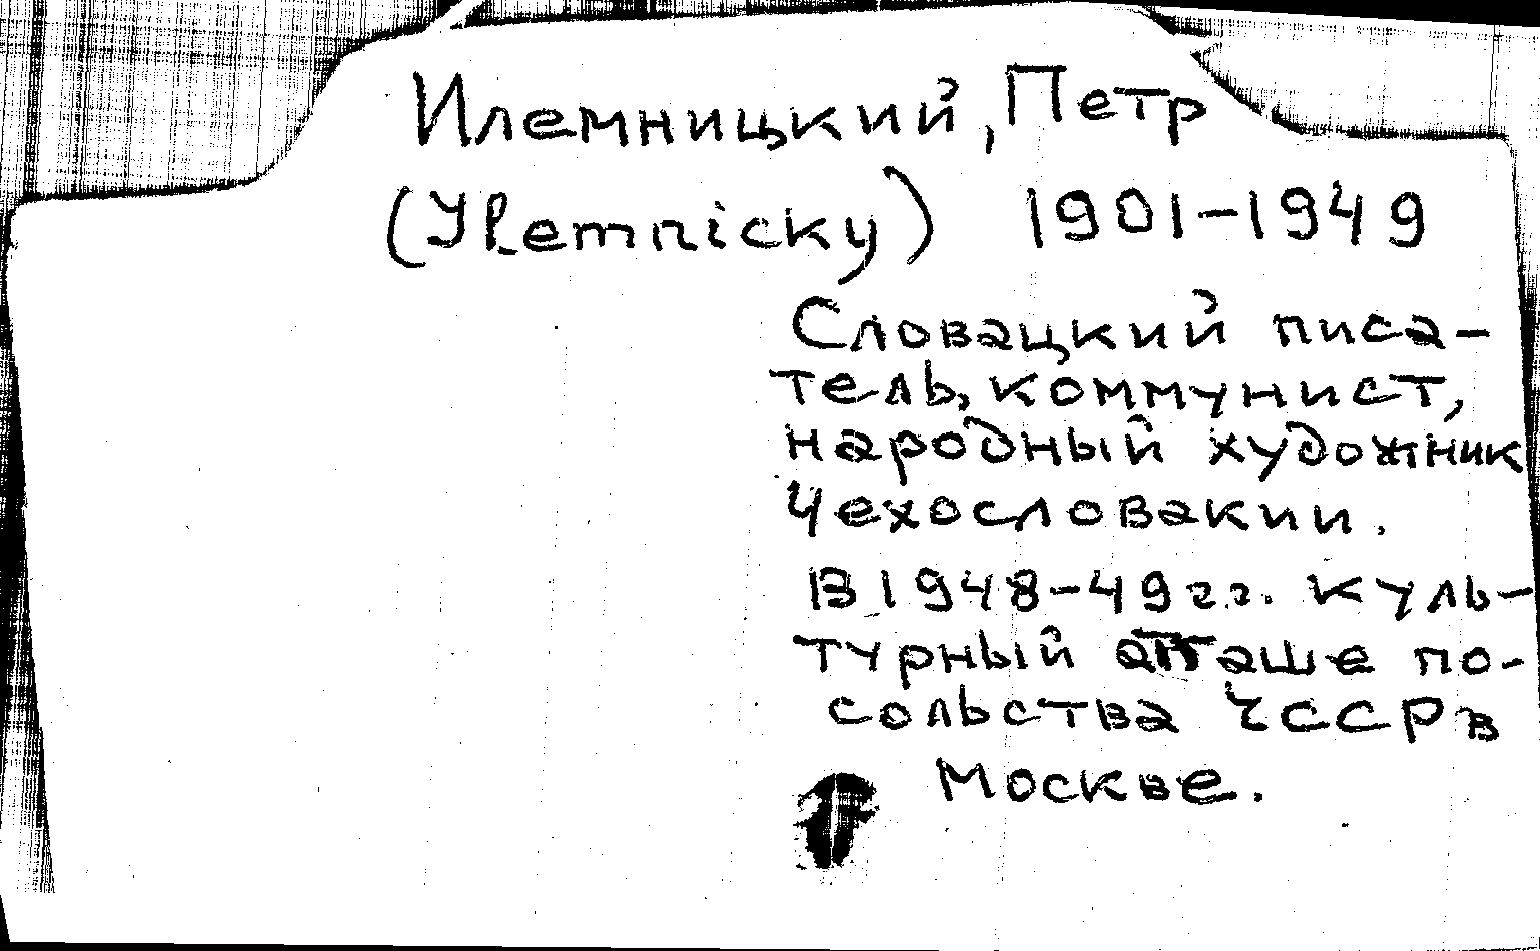 Илемницкий, Петр
(Jlemnicky) 1901-1949
Словацкий писа-
тель, коммунист,
народный художник
Чехословакии.
В 1948-49 гг. куль-
турный атташе по-
сольства ЧССР в
Москве.